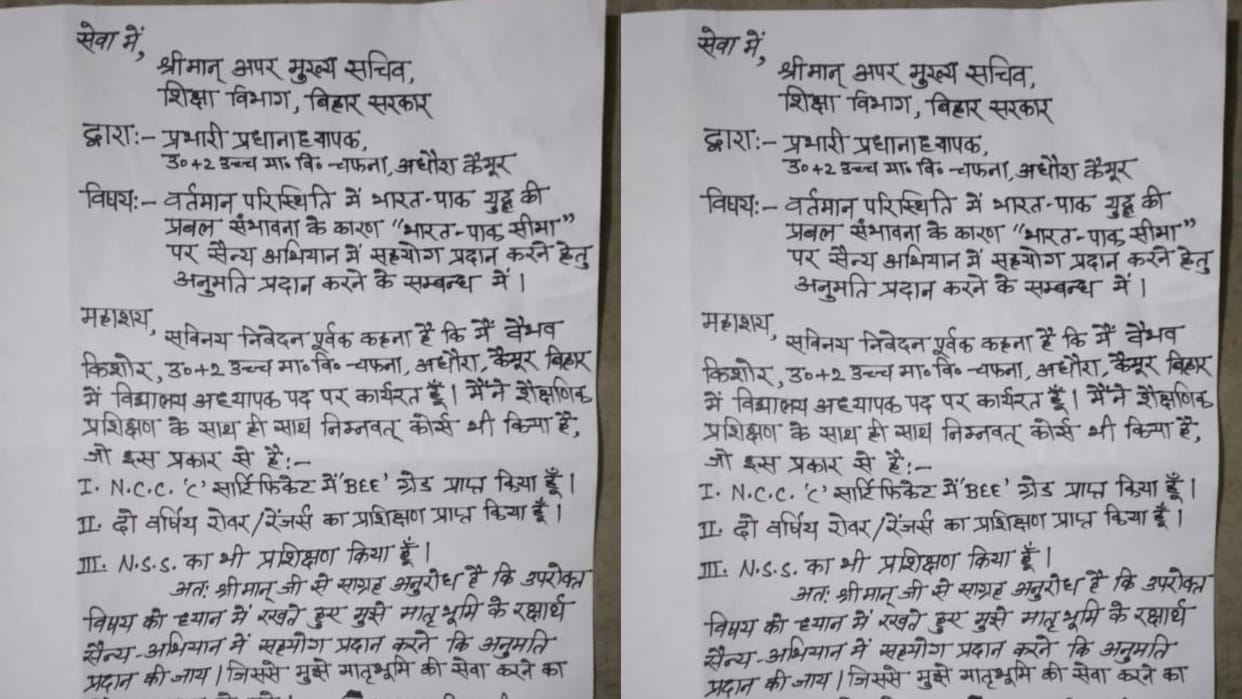 सेवा में,
श्रीमान् अपर मुख्य सचिव,
शिक्षा विभाग, बिहार सरकार
द्वारा:- प्रभारी प्रधानाध्यापक,
उ०+2 उच्च मा० वि० चफना, अधौरा कैमूर
विषय:- वर्तमान परिस्थिति में भारत-पाक युद्ध की
प्रबल संभावना के कारण “भारत-पाक सीमा”
पर सैन्य अभियान में सहयोग प्रदान करने हेतु
अनुमति प्रदान करने के सम्बन्ध में।
महाशय,
सविनय निवेदन पूर्वक कहना है कि मैं वैभव
किशोर, उ०+2 उच्च मा० वि० चफना, अधौरा, कैमूर बिहार
में विद्यालय अध्यापक पद पर कार्यरत हूँ। मैंने शैक्षणिक
प्रशिक्षण के साथ ही साथ निम्नवत् कोर्स भी किया है,
जो इस प्रकार से है:-
I. N.C.C. ‘C’ सार्टिफिकेट में ‘BEE’ ग्रेड प्राप्त किया हूँ।
II. दो वर्षिय रोवर/रेंजर्स का प्रशिक्षण प्राप्त किया हूँ।
III. N.S.S. का भी प्रशिक्षण किया हूँ।
अतः श्रीमान् जी से साग्रह अनुरोध है कि उपरोक्त
विषय को ध्यान में रखते हुए मुझे मातृभूमि के रक्षार्थ
सैन्य-अभियान में सहयोग प्रदान करने कि अनुमति
प्रदान की जाय। जिससे मुझे मातृभूमि की सेवा करने का
सेवा में,
श्रीमान् अपर मुख्य सचिव,
शिक्षा विभाग, बिहार सरकार
द्वारा:- प्रभारी प्रधानाध्यापक,
उ०+2 उच्च मा० वि० चफना, अधौरा कैमूर
विषय:- वर्तमान परिस्थिति में भारत-पाक युद्ध की
प्रबल संभावना के कारण “भारत-पाक सीमा”
पर सैन्य अभियान में सहयोग प्रदान करने हेतु
अनुमति प्रदान करने के सम्बन्ध में।
महाशय,
सविनय निवेदन पूर्वक कहना है कि मैं वैभव
किशोर, उ०+2 उच्च मा० वि० चफना, अधौरा, कैमूर बिहार
में विद्यालय अध्यापक पद पर कार्यरत हूँ। मैंने शैक्षणिक
प्रशिक्षण के साथ ही साथ निम्नवत् कोर्स भी किया है,
जो इस प्रकार से है:-
I. N.C.C. ‘C’ सार्टिफिकेट में ‘BEE’ ग्रेड प्राप्त किया हूँ।
II. दो वर्षिय रोवर/रेंजर्स का प्रशिक्षण प्राप्त किया हूँ।
III. N.S.S. का भी प्रशिक्षण किया हूँ।
अतः श्रीमान् जी से साग्रह अनुरोध है कि उपरोक्त
विषय को ध्यान में रखते हुए मुझे मातृभूमि के रक्षार्थ
सैन्य-अभियान में सहयोग प्रदान करने कि अनुमति
प्रदान की जाय। जिससे मुझे मातृभूमि की सेवा करने का